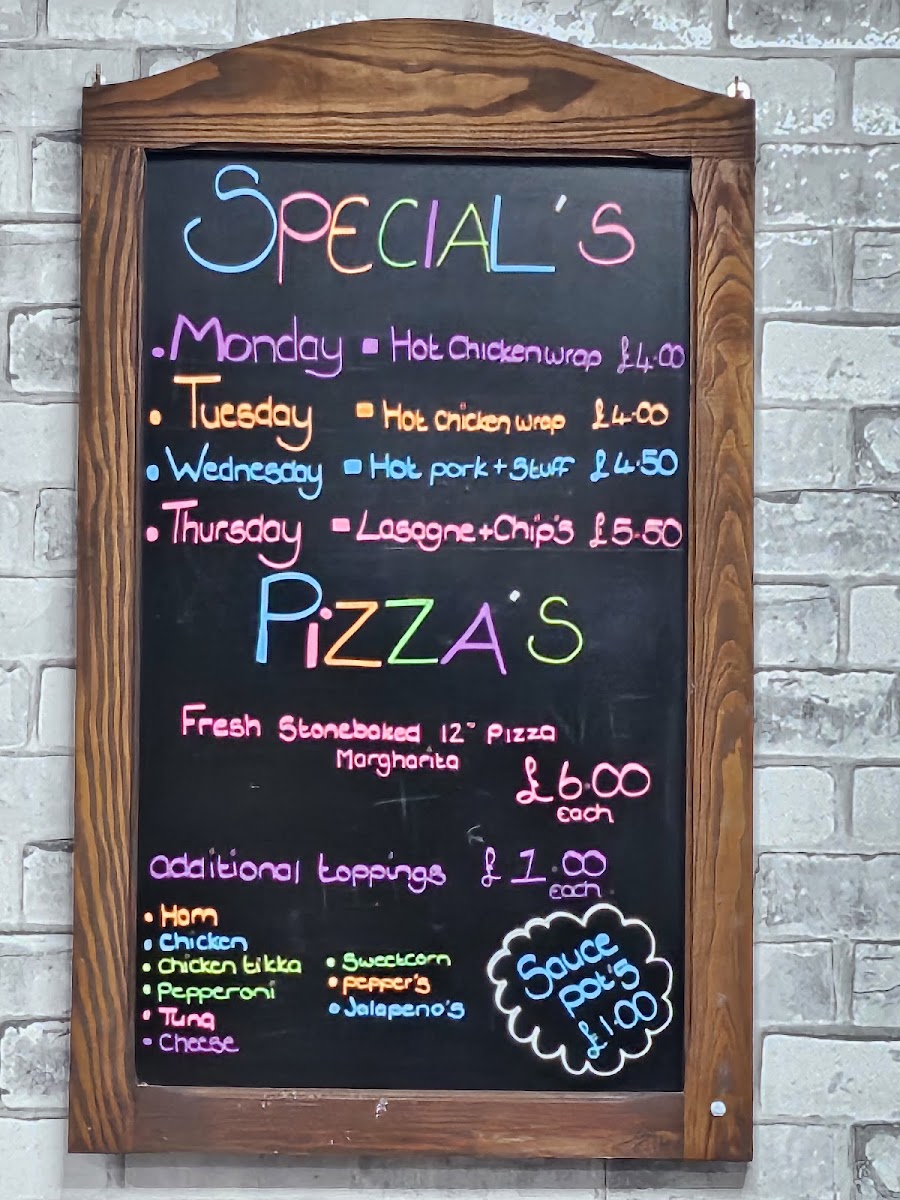 SPECIAL'S
• Monday - Hot Chicken wrap £4.00
• Tuesday - Hot chicken wrap £4.00
• Wednesday - Hot pork + Stuff £4.50
• Thursday - Lasagne + Chip's £5.50
PiZZA'S
Fresh Stonebaked 12" Pizza
Margharita
£6.00
Each
additional toppings £1.00
each
• Ham
• Chicken
• Chicken tikka
• Pepperoni
• Tuna
• Cheese
• Sweetcorn
• pepper's
• Jalapeno's
Sauce
pot's
£1.00